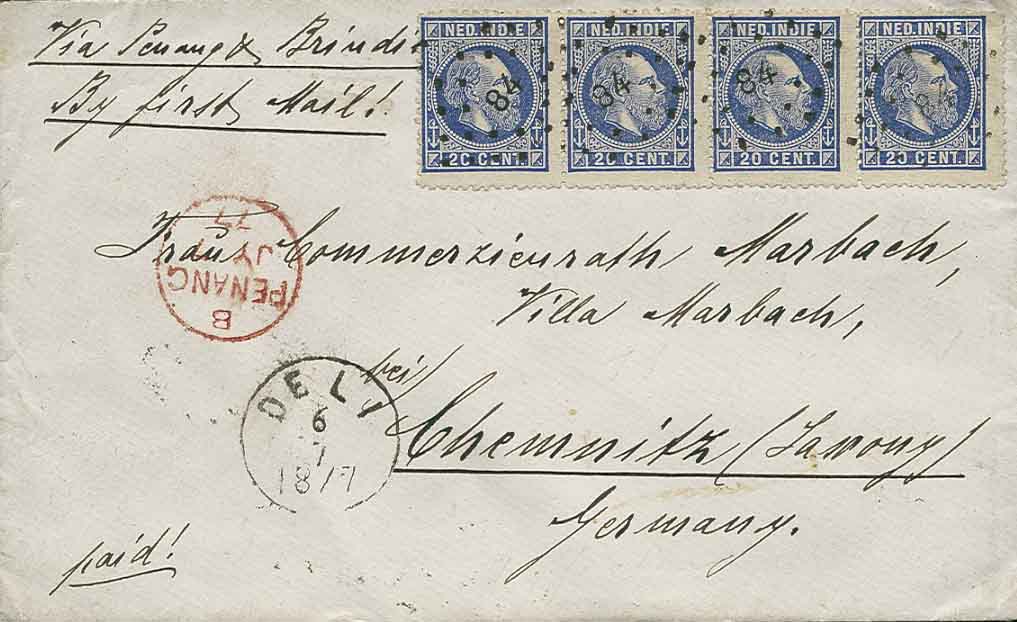 Via Penang & Brindisi
By first Mail!
NED. INDIE NED. INDIE NED. INDIE NED. INDIE
84 84 84 84
20 CENT. 20 CENT. 20 CENT. 20 CENT.
Frau Commerzienrath Marbach,
Villa Marbach,
bei
Chemnitz (Saxony)
Germany.
B
PENANG
JY
77
DELI
6
7
1877
paid!